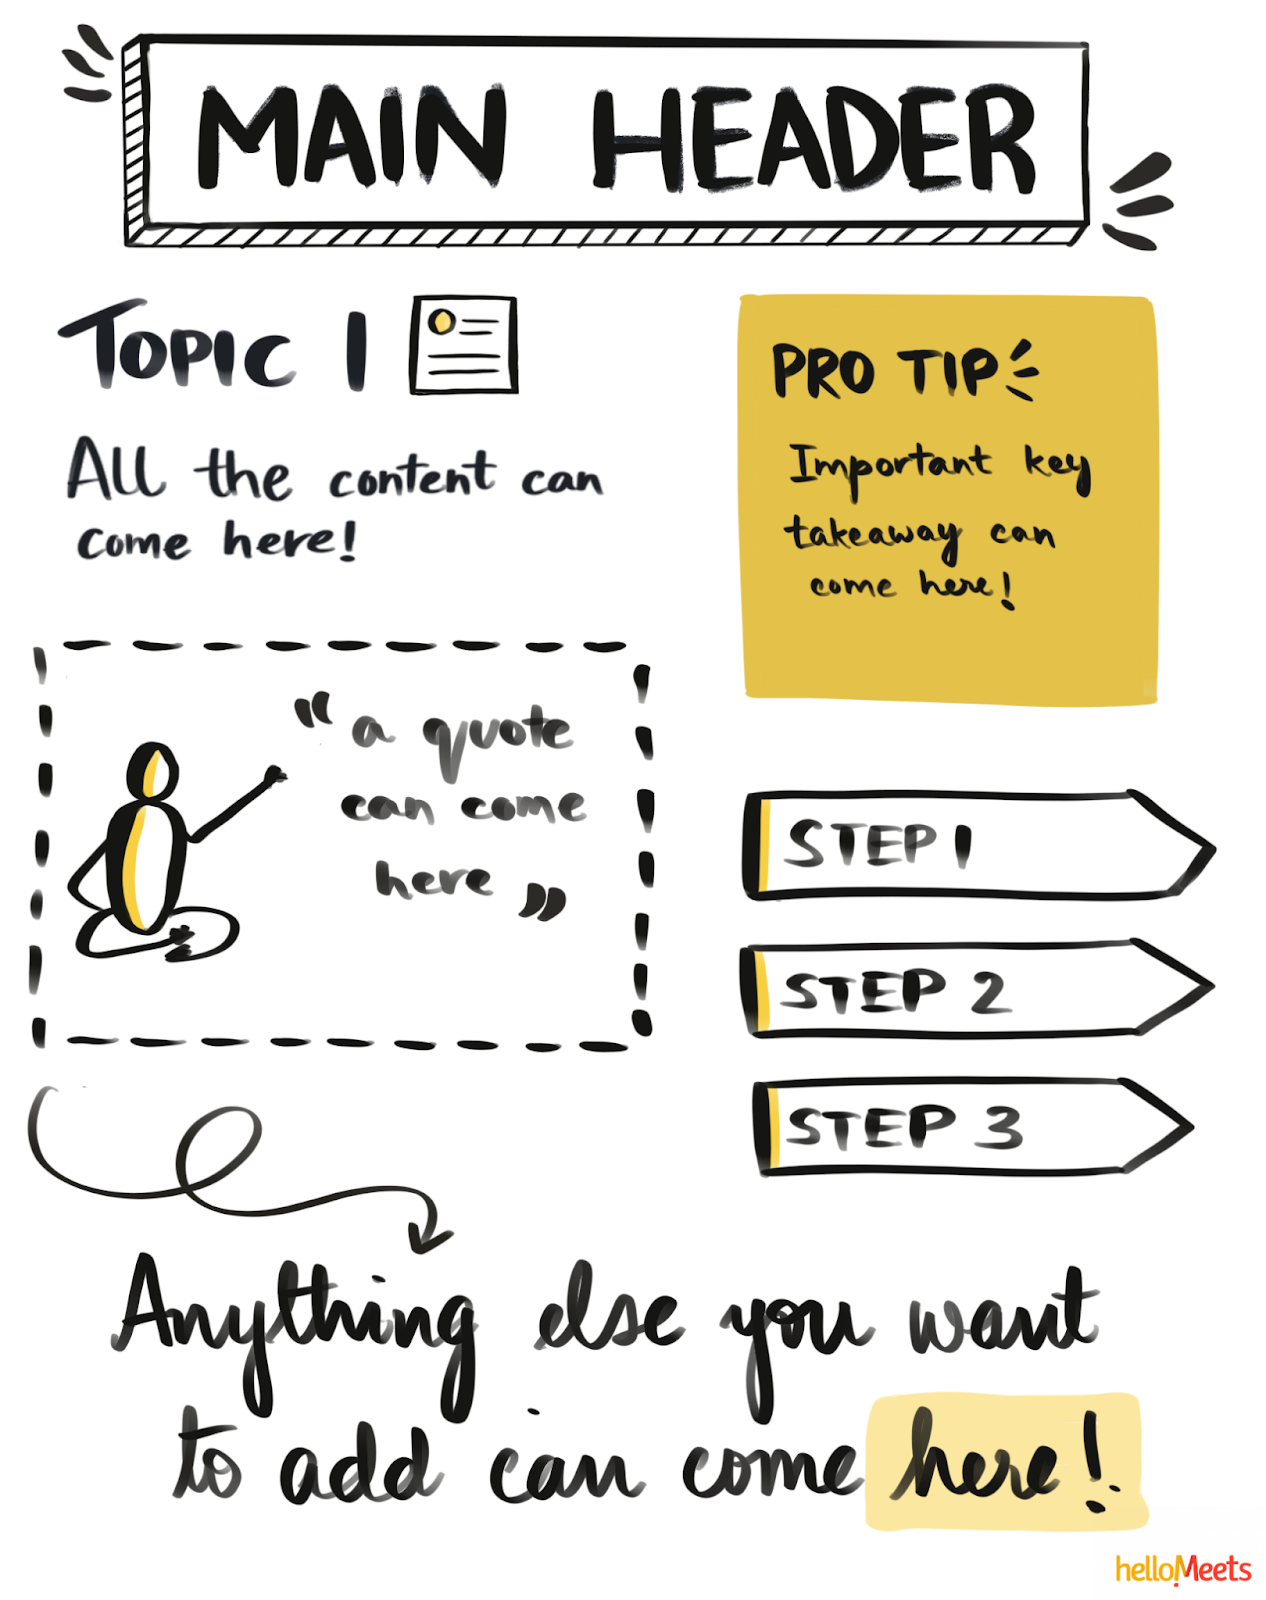 MAIN HEADER
TOPIC 1
All the content can
come here!
PRO TIP
Important key
takeaway can
come here!
“a quote
can come
here”
STEP 1
STEP 2
STEP 3
Anything else you want
to add can come here!
helloMeets